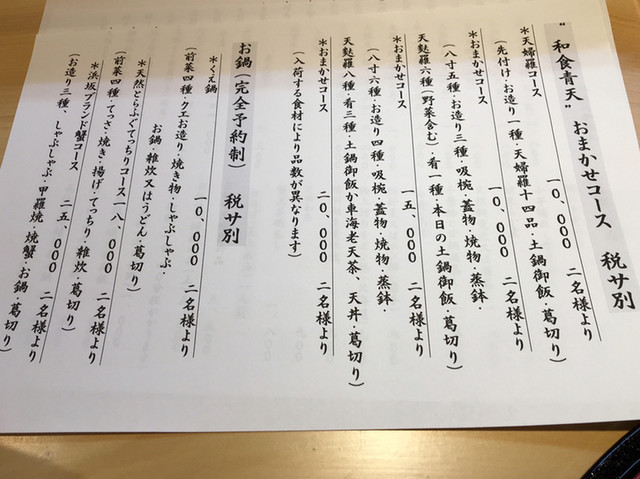 "和食青天" おまかせコース 税サ別
*天婦羅コース 一〇、〇〇〇 二名様より
(先付け・お造り一種・天婦羅十四品・土鍋御飯・葛切り)
*おまかせコース 一〇、〇〇〇 二名様より
(八寸五種・お造り三種・吸椀・蓋物・焼物・蒸鉢・
天麩羅六種(野菜含む)・肴一種・本日の土鍋御飯・葛切り)
*おまかせコース 一五、〇〇〇 二名様より
(八寸六種・お造り四種・吸椀・蓋物・焼物・蒸鉢・
天麩羅八種・肴三種・土鍋御飯か車海老天茶、天丼・葛切り)
*おまかせコース 二〇、〇〇〇 二名様より
(入荷する食材により品数が異なります)
お鍋(完全予約制) 税サ別
*くえ鍋 一〇、〇〇〇 二名様より
(前菜四種・クエお造り・焼き物・しゃぶしゃぶ・
お鍋・雑炊又はうどん・葛切り)
*天然とらふぐてっちりコース 一八、〇〇〇 二名様より
(前菜四種・てっさ・焼き・揚げ・てっちり・雑炊・葛切り)
*浜坂ブランド蟹コース 二五、〇〇〇 二名様より
(お造り三種、しゃぶしゃぶ・甲羅焼・焼蟹・お鍋・葛切り)